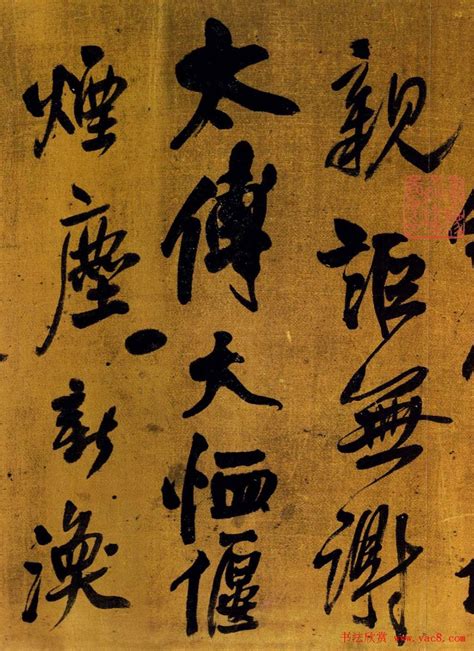 親詎無謝
太傅大恤偃
煙塵新渙
书法欣赏 www.yac8.com